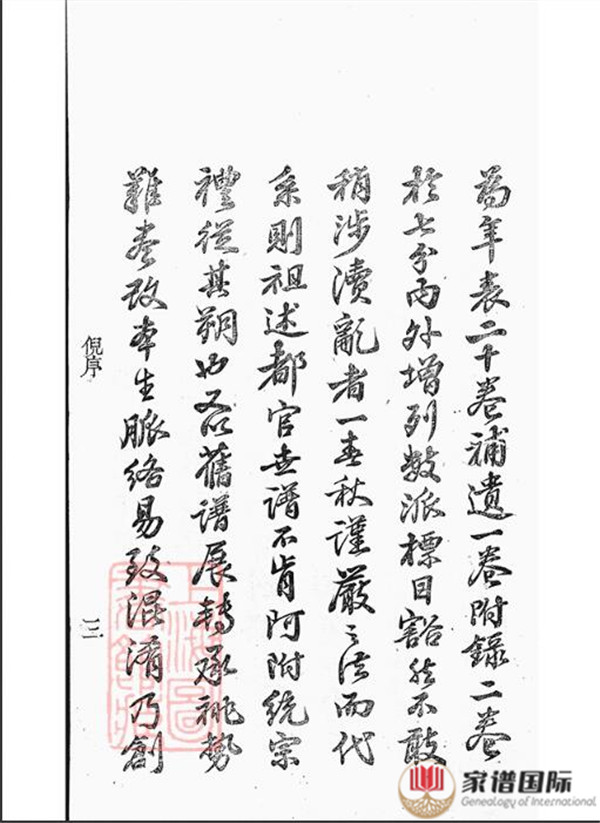 為年表二十卷補遺一卷附錄二卷
於七分內外增列數派標目豁然不敢
稍涉瀆亂者一春秋謹嚴之法而代
系則祖述都官世譜不肯阿附統宗
禮從其朔也又以舊譜展轉承祧勢
難盡改本生脈絡易致混淆乃創
倪序
三
家谱国际
Genealogy of International